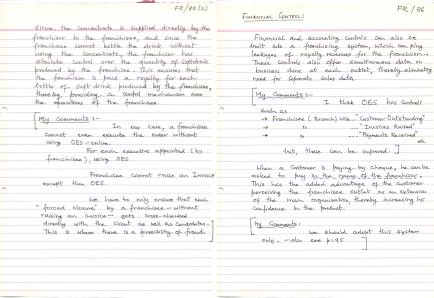 FR/86(2)
Since the concentrate is supplied directly by the
franchisor to the franchisee, and since the
franchisee cannot bottle the drink without
using the concentrate, the franchisor has
absolute control over the quantity of softdrink
produced by the franchisee. This ensures that
the franchisor is paid a royalty for each
bottle of soft drink produced by the franchisee,
thereby providing a control mechanism over
the operations of the franchisee.
[My Comments :-
In our case, a franchisee
cannot even execute the order without
using OES - online.
For each executive appointed (by
franchisee), using OES.
Franchisee cannot raise an Invoice
except thru OES.
We have to only ensure that each
"forced closure" by a franchisee - without
raising an invoice - gets cross-checked
directly with the client as well as candidates.
This is where there is a possibility of fraud.]
FR/86
FINANCIAL CONTROLS
Financial and accounting controls can also be
built into a franchising system, which can plug
leakages of royalty revenues for the franchisor.
These controls also offer simultaneous data on
business done at each outlet, thereby eliminating
need for separate sales data.
[My Comments :-
I think OES has controls
such as
→ Franchisee (Branch) wise "Customer Outstanding"
→ " "Invoices Raised"
→ " "Payments Received"
etc
but, these can be improved.]
When a customer is paying by cheque, he can be
asked to pay in the name of the franchisor.
This has the added advantage of the customer
perceiving the franchisee outlet as an extension
of the main organisation, thereby increasing his
confidence in the product.
[My Comments:
We should adopt this system
only. - also see p:95]